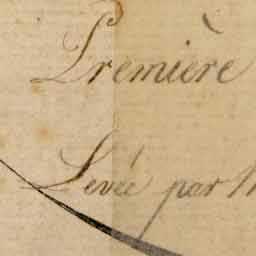 Première
Levée par